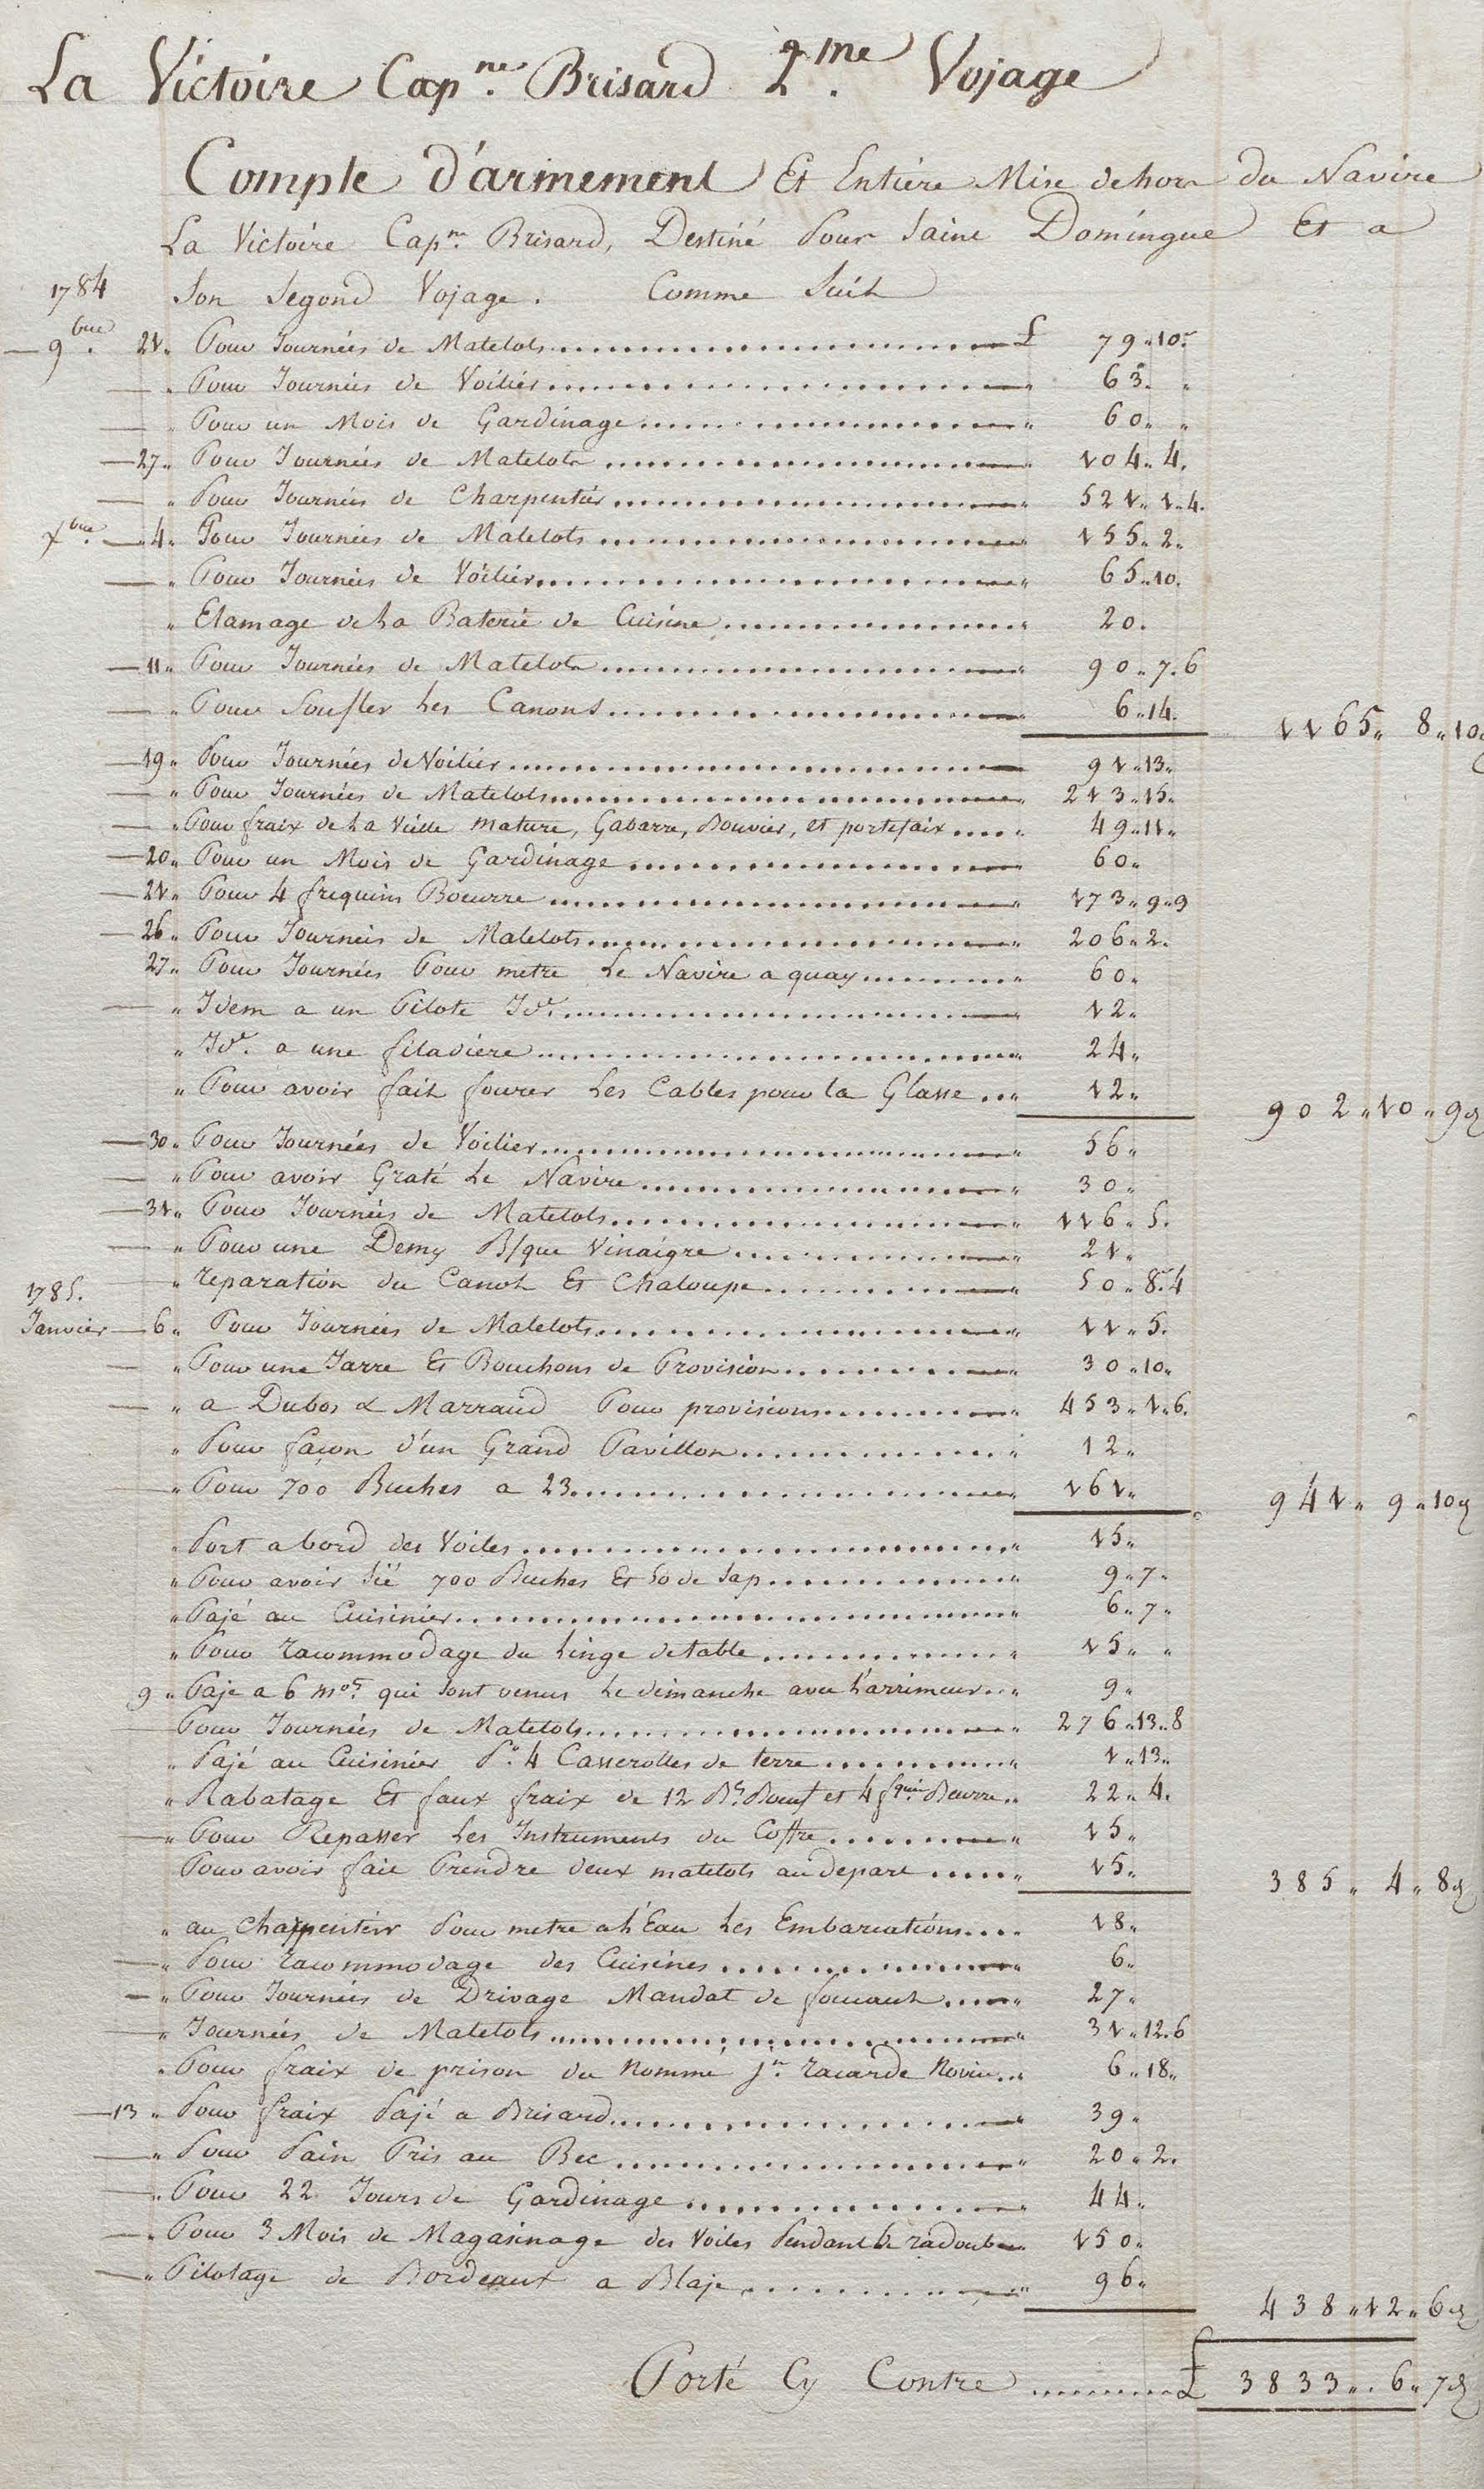 La Victoire Cap.ne Brisard 2.me Voyage
Compte d'armement Et Entiére Mise dehors du Navire
La Victoire Cap.ne Brisard, Destiné Pour Saint Domingue Et a
1784 Son Segond Voyage. Comme Suit
9.bre 21 „ Pour Journées de Matelots £ 79 „ 10 s
„ Pour Journées de Voilier „ 63 „ „
„ Pour un Mois de Gardinage „ 60 „ „
27 „ Pour Journées de Matelots „ 104 „ 4.
„ Pour Journées de Charpentier „ 521 „ 1 „ 4.
X.bre 4 „ Pour Journées de Matelots „ 155 „ 2 „
„ Pour Journées de Voilier „ 65 „ 10.
„ Etamage de La Baterie de Cuisine „ 20.
11 „ Pour Journées de Matelots „ 90 „ 7 . 6
„ Pour Soufler Les Canons „ 6 „ 14. 1165 „ 8 „ 10 d
19 „ Pour Journées de Voilier „ 91 „ 13 „
„ Pour Journées de Matelots „ 213 „ 15 „
„ Pour fraix de La Vieille mature, Gabarre, Bouvier, et portefaix „ 49 „ 11 „
20 „ Pour un Mois de Gardinage „ 60 „
21 „ Pour 4 frequins Boeurre „ 173 „ 9 „ 9
26 „ Pour Journées de Matelots „ 206 „ 2.
27 „ Pour Journées Pour metre Le Navire a quay „ 60 „
„ Idem a un Pilote Id.e „ 12 „
„ Id.e a une filadiere „ 24 „
„ Pour avoir fait fourer Les Cables pour la Glasse „ 12 „ 902 „ 10 „ 9 d
30 „ Pour Journées de Voilier „ 56 „
„ Pour avoir Graté Le Navire „ 30 „
31 „ Pour Journées de Matelots „ 116 „ 5.
„ Pour une Demy B/que Vinaigre „ 21 „
1785. „ reparation du Canot Et Chaloupe „ 50 „ 8 „ 4
Janvier 6 „ Pour Journées de Matelots „ 11 „ 5.
„ Pour une Jarre Et Bouchons de Provision „ 30 „ 10 „
„ a Dubos & Marraud Pour provisions „ 453 „ 1 „ 6.
„ Pour façon d'un Grand Pavillon „ 12 „
„ Pour 700 Buches a 23 „ 161 „ 941 „ 9 „ 10 d
„ Port abord des Voiles „ 15 „
„ Pour avoir Sié 700 Buches Et 50 de Sap „ 9 „ 7 „
„ Pajé au Cuisinier „ 6 „ 7 „
„ Pour racommodage du Linge de table „ 15 „ „
9 „ Paje a 6 mots qui Sont venus Le dimanche avec L'arrimeur „ 9 „
Pour Journées de Matelots „ 276 „ 13 „ 8
„ Pajé au Cuisinier P.o 4 Casserolles de terre „ 1 „ 13 „
„ Rabatage Et faux fraix de 12 B.ls Boeuf et 4 f.quins Beurre 22 „ 4.
„ Pour Repasser Les Instruments du Coffre „ 15 „
Pour avoir fait Prendre deux matelots au depart „ 15 „ 385 „ 4 „ 8 d
„ au Charpentier Pour metre a L'Eau Les Embarcations 18 „
„ Pour racommodage des Cuisines „ 6 „
„ Pour Journées de Drivage Mandat de foucault „ 27 „
„ Journées de Matelots „ 31 „ 12 . 6
„ Pour fraix de prison du Nomme J.n racarde Novice „ 6 „ 18 „
13 „ Pour fraix Pajé a Brisard „ 39 „
„ Pour Pain Pris au Bec „ 20 „ 2.
„ Pour 22 Jours de Gardinage „ 44 „
„ Pour 3 Mois de Magasinage des Voiles Pendant le radoub „ 150 „
„ Pilotage de Bordeaux a Blaje „ 96 „ 438 „ 12 „ 6 d
Porté Cy Contre £ 3833 „ 6 „ 7 d